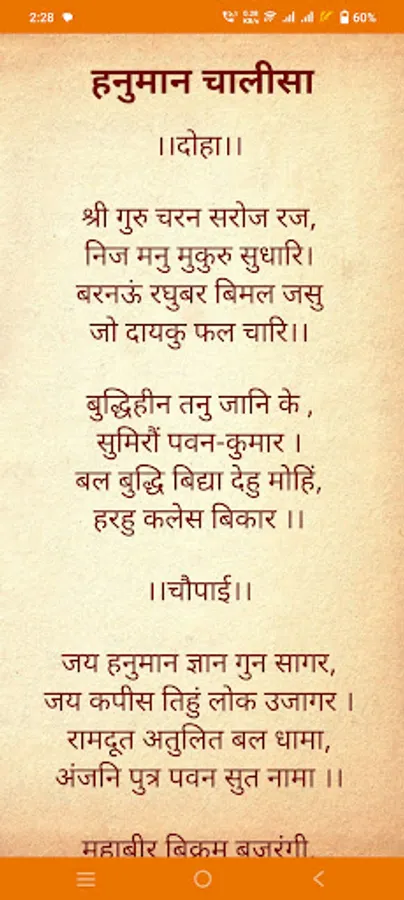 2:28
0.28 KB/s
60%
हनुमान चालीसा
।।दोहा।।
श्री गुरु चरन सरोज रज,
निज मनु मुकुरु सुधारि।
बरनऊं रघुबर बिमल जसु
जो दायकु फल चारि।।
बुद्धिहीन तनु जानि के ,
सुमिरौं पवन-कुमार ।
बल बुद्धि बिद्या देहु मोहिं,
हरहु कलेस बिकार ।।
।।चौपाई।।
जय हनुमान ज्ञान गुन सागर,
जय कपीस तिहुं लोक उजागर ।
रामदूत अतुलित बल धामा,
अंजनि पुत्र पवन सुत नामा ।।
महाबीर बिक्रम बजरंगी,